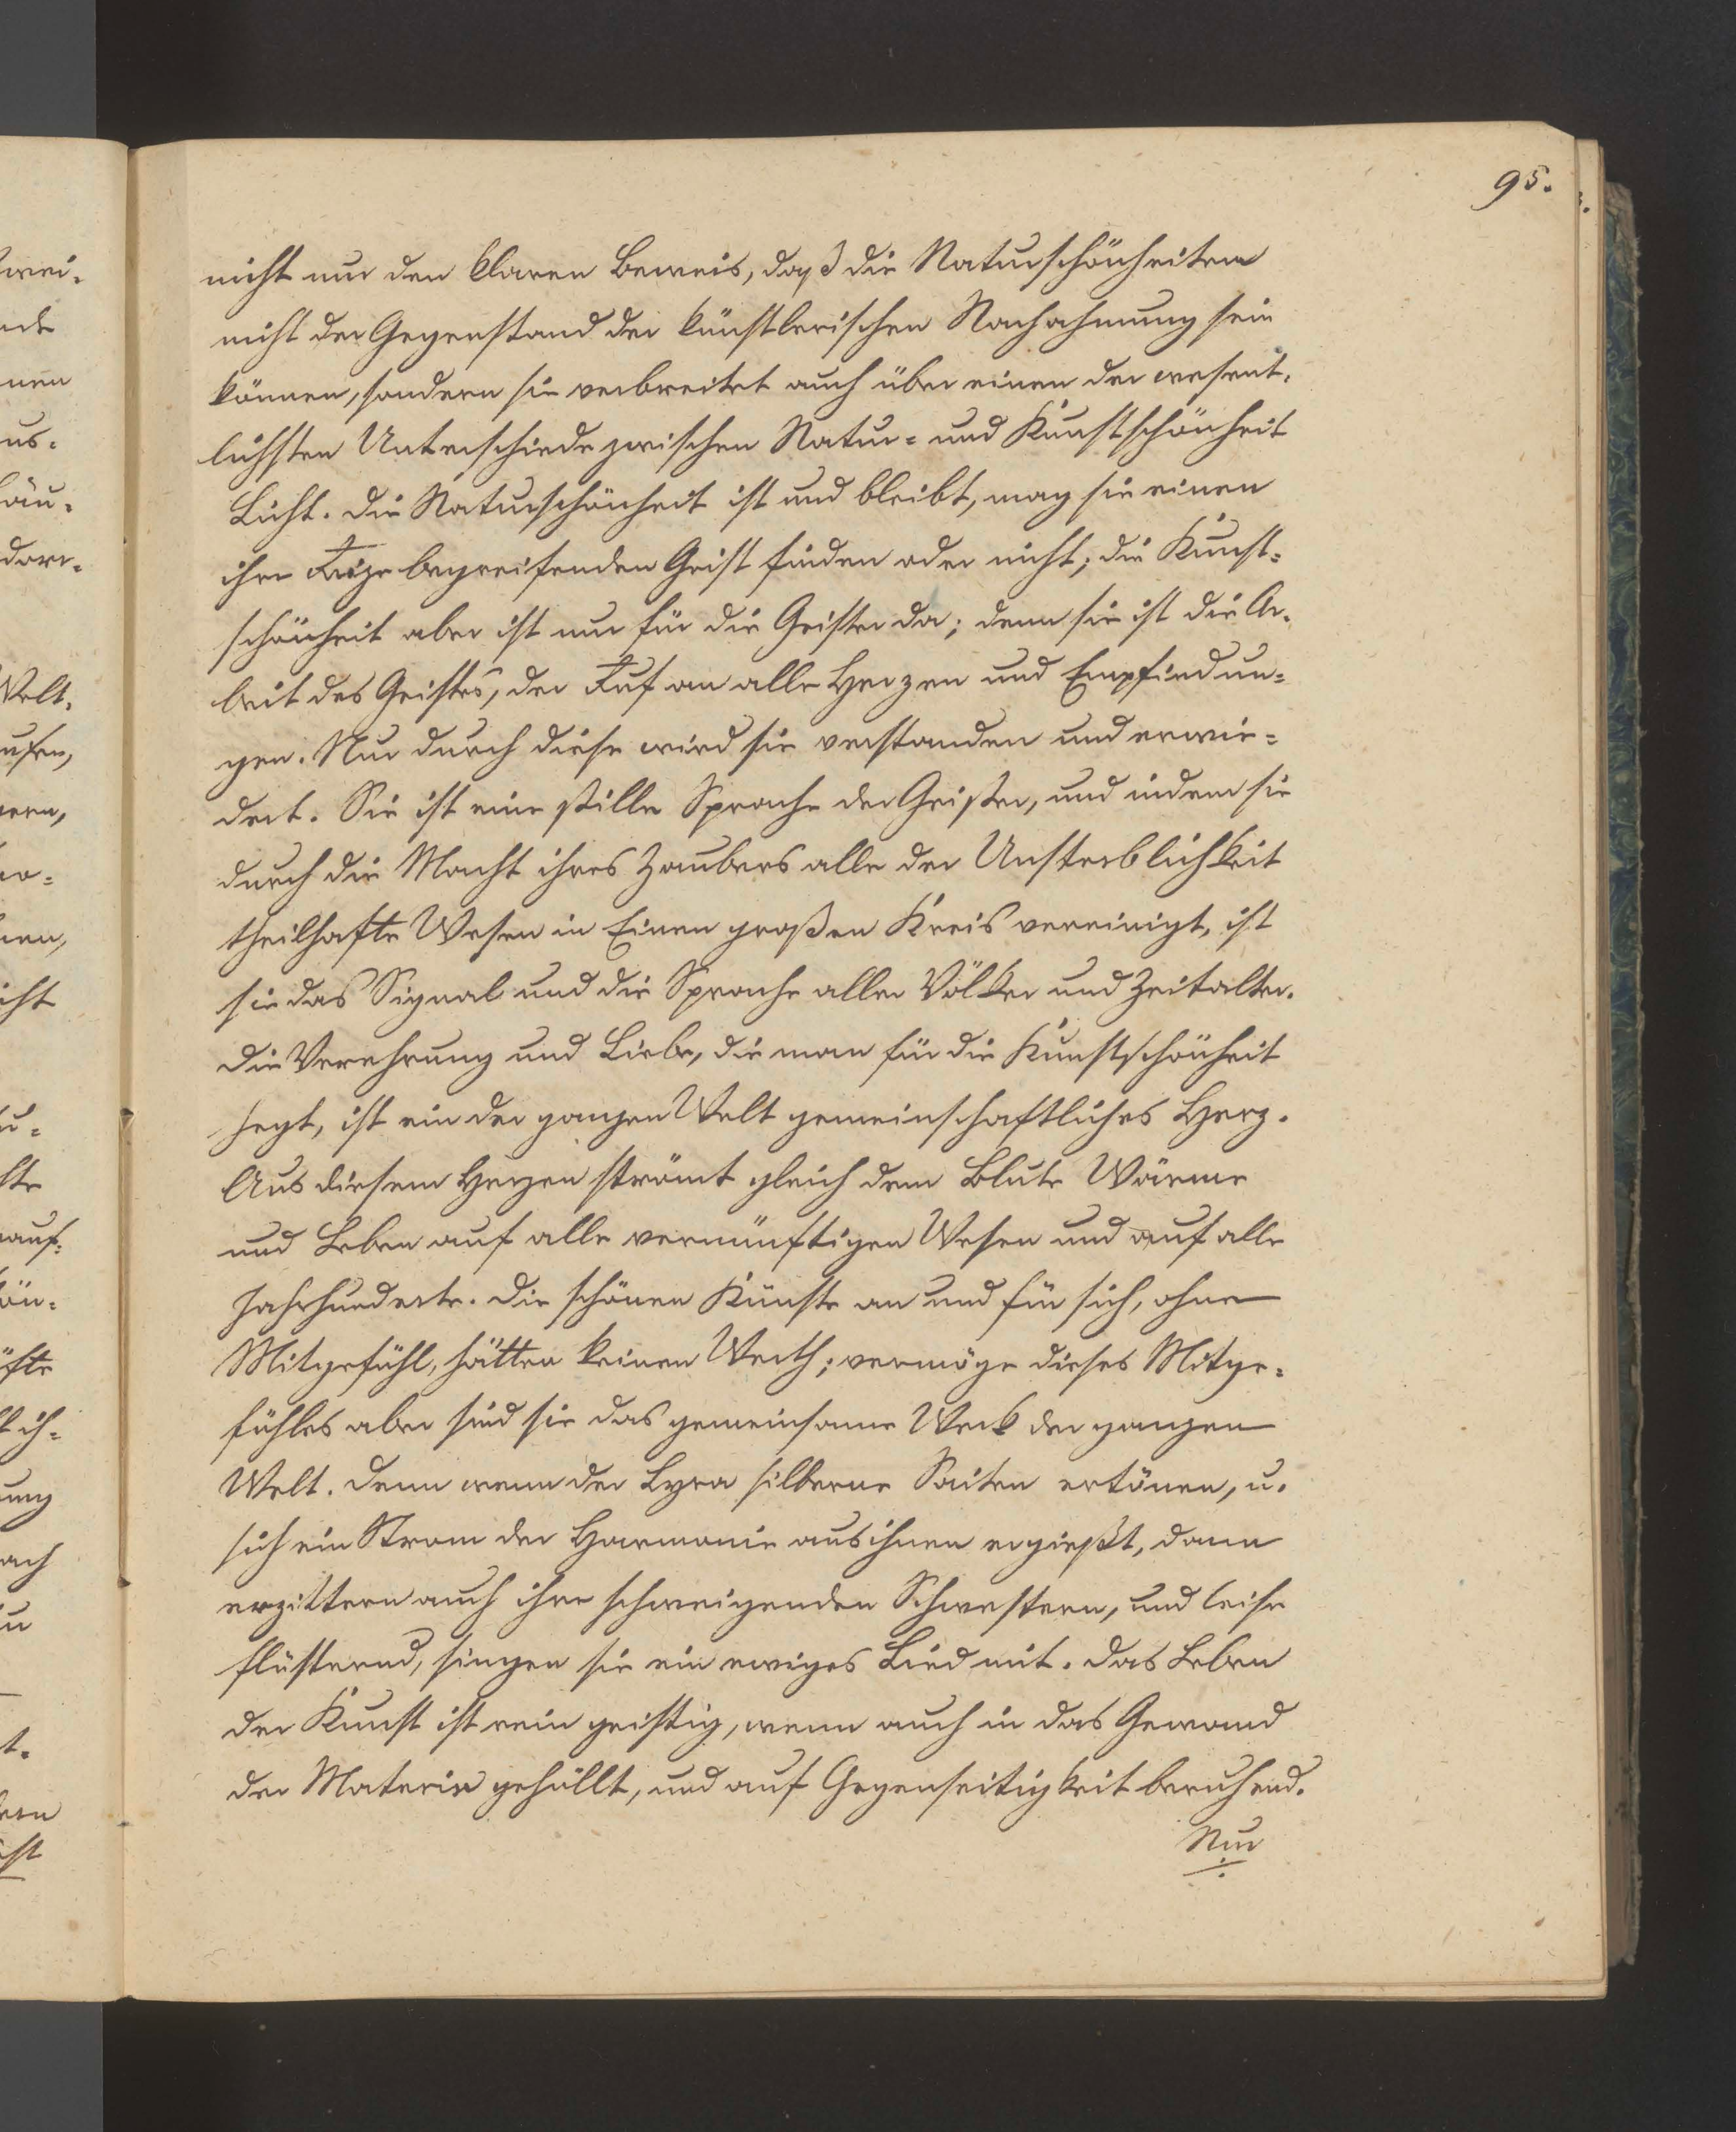 95.
nicht nur den klaren Beweis, daß die Naturschönheiten
nicht der Gegenstand der künstlerischen Nachahmung sein
können, sondern sie verbreitet auch über einen der wesent-
lichsten Unterschiede zwischen Natur- und Kunstschönheit
Licht. Die Naturschönheit ist und bleibt, mag sie einen
ihre Reize begreifenden Geist finden oder nicht; die Kunst-
schönheit aber ist nur für die Geister da; denn sie ist die Ar-
beit des Geistes, der Ruf an alle Herzen und Empfindun-
gen. Nur durch diese wird sie verstanden und erwie-
dert. Sie ist eine stille Sprache der Geister, und indem sie
durch die Macht ihres Zaubers alle der Unsterblichkeit
theilhafte Wesen in Einen großen Kreis vereinigt, ist
sie das Signal und die Sprache aller Völker und Zeitalter.
Die Verehrung und Liebe, die man für die Kunstschönheit
hegt, ist ein der ganzen Welt gemeinschaftliches Herz.
Aus diesem Herzen strömt gleich dem Blute Wärme
und Leben auf alle vernünftigen Wesen und auf alle
Jahrhunderte. Die schönen Künste an und für sich, ohne
Mitgefühl, hätten keinen Werth; vermöge dieses Mitge-
fühles aber sind sie das gemeinsame Werk der ganzen
Welt. Denn wenn der Lyra silberne Saiten ertönen, u.
sich ein Strom der Harmonie aus ihnen ergießt, dann
erzittern auch ihre schweigenden Schwestern, und leise
flüsternd, singen sie ein ewiges Lied mit. Das Leben
der Kunst ist rein geistig, wenn auch in das Gewand
der Materie gehüllt, und auf Gegenseitigkeit beruhend.
Nur